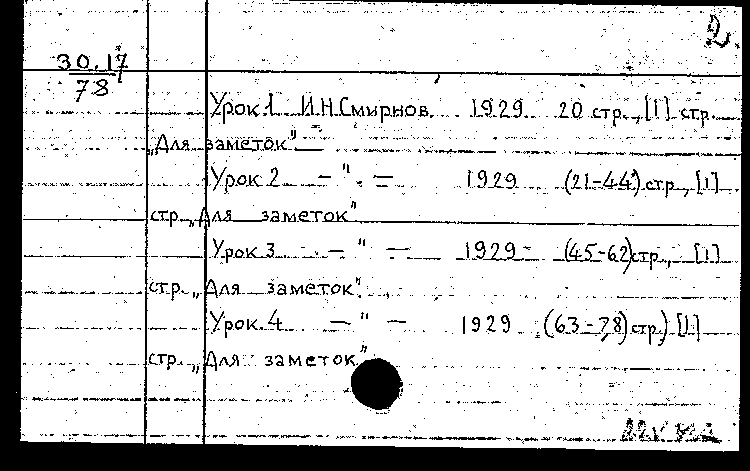 2.
30.17
78
Урок 1 И.Н.Смирнов. 1929 20 стр., [1] стр.
„Для заметок" —
Урок 2 — " — 1929 (21-44) стр., [1]
стр. „Для заметок".
Урок 3 — " — 1929 - (45-62) стр., [1]
стр. „Для заметок".
Урок 4 — " — 1929 (63-78) стр.) [1]
стр. „Для заметок"